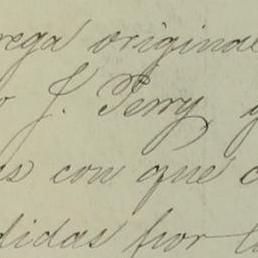 rega origina
J. Perry, y
s con que
didas por l